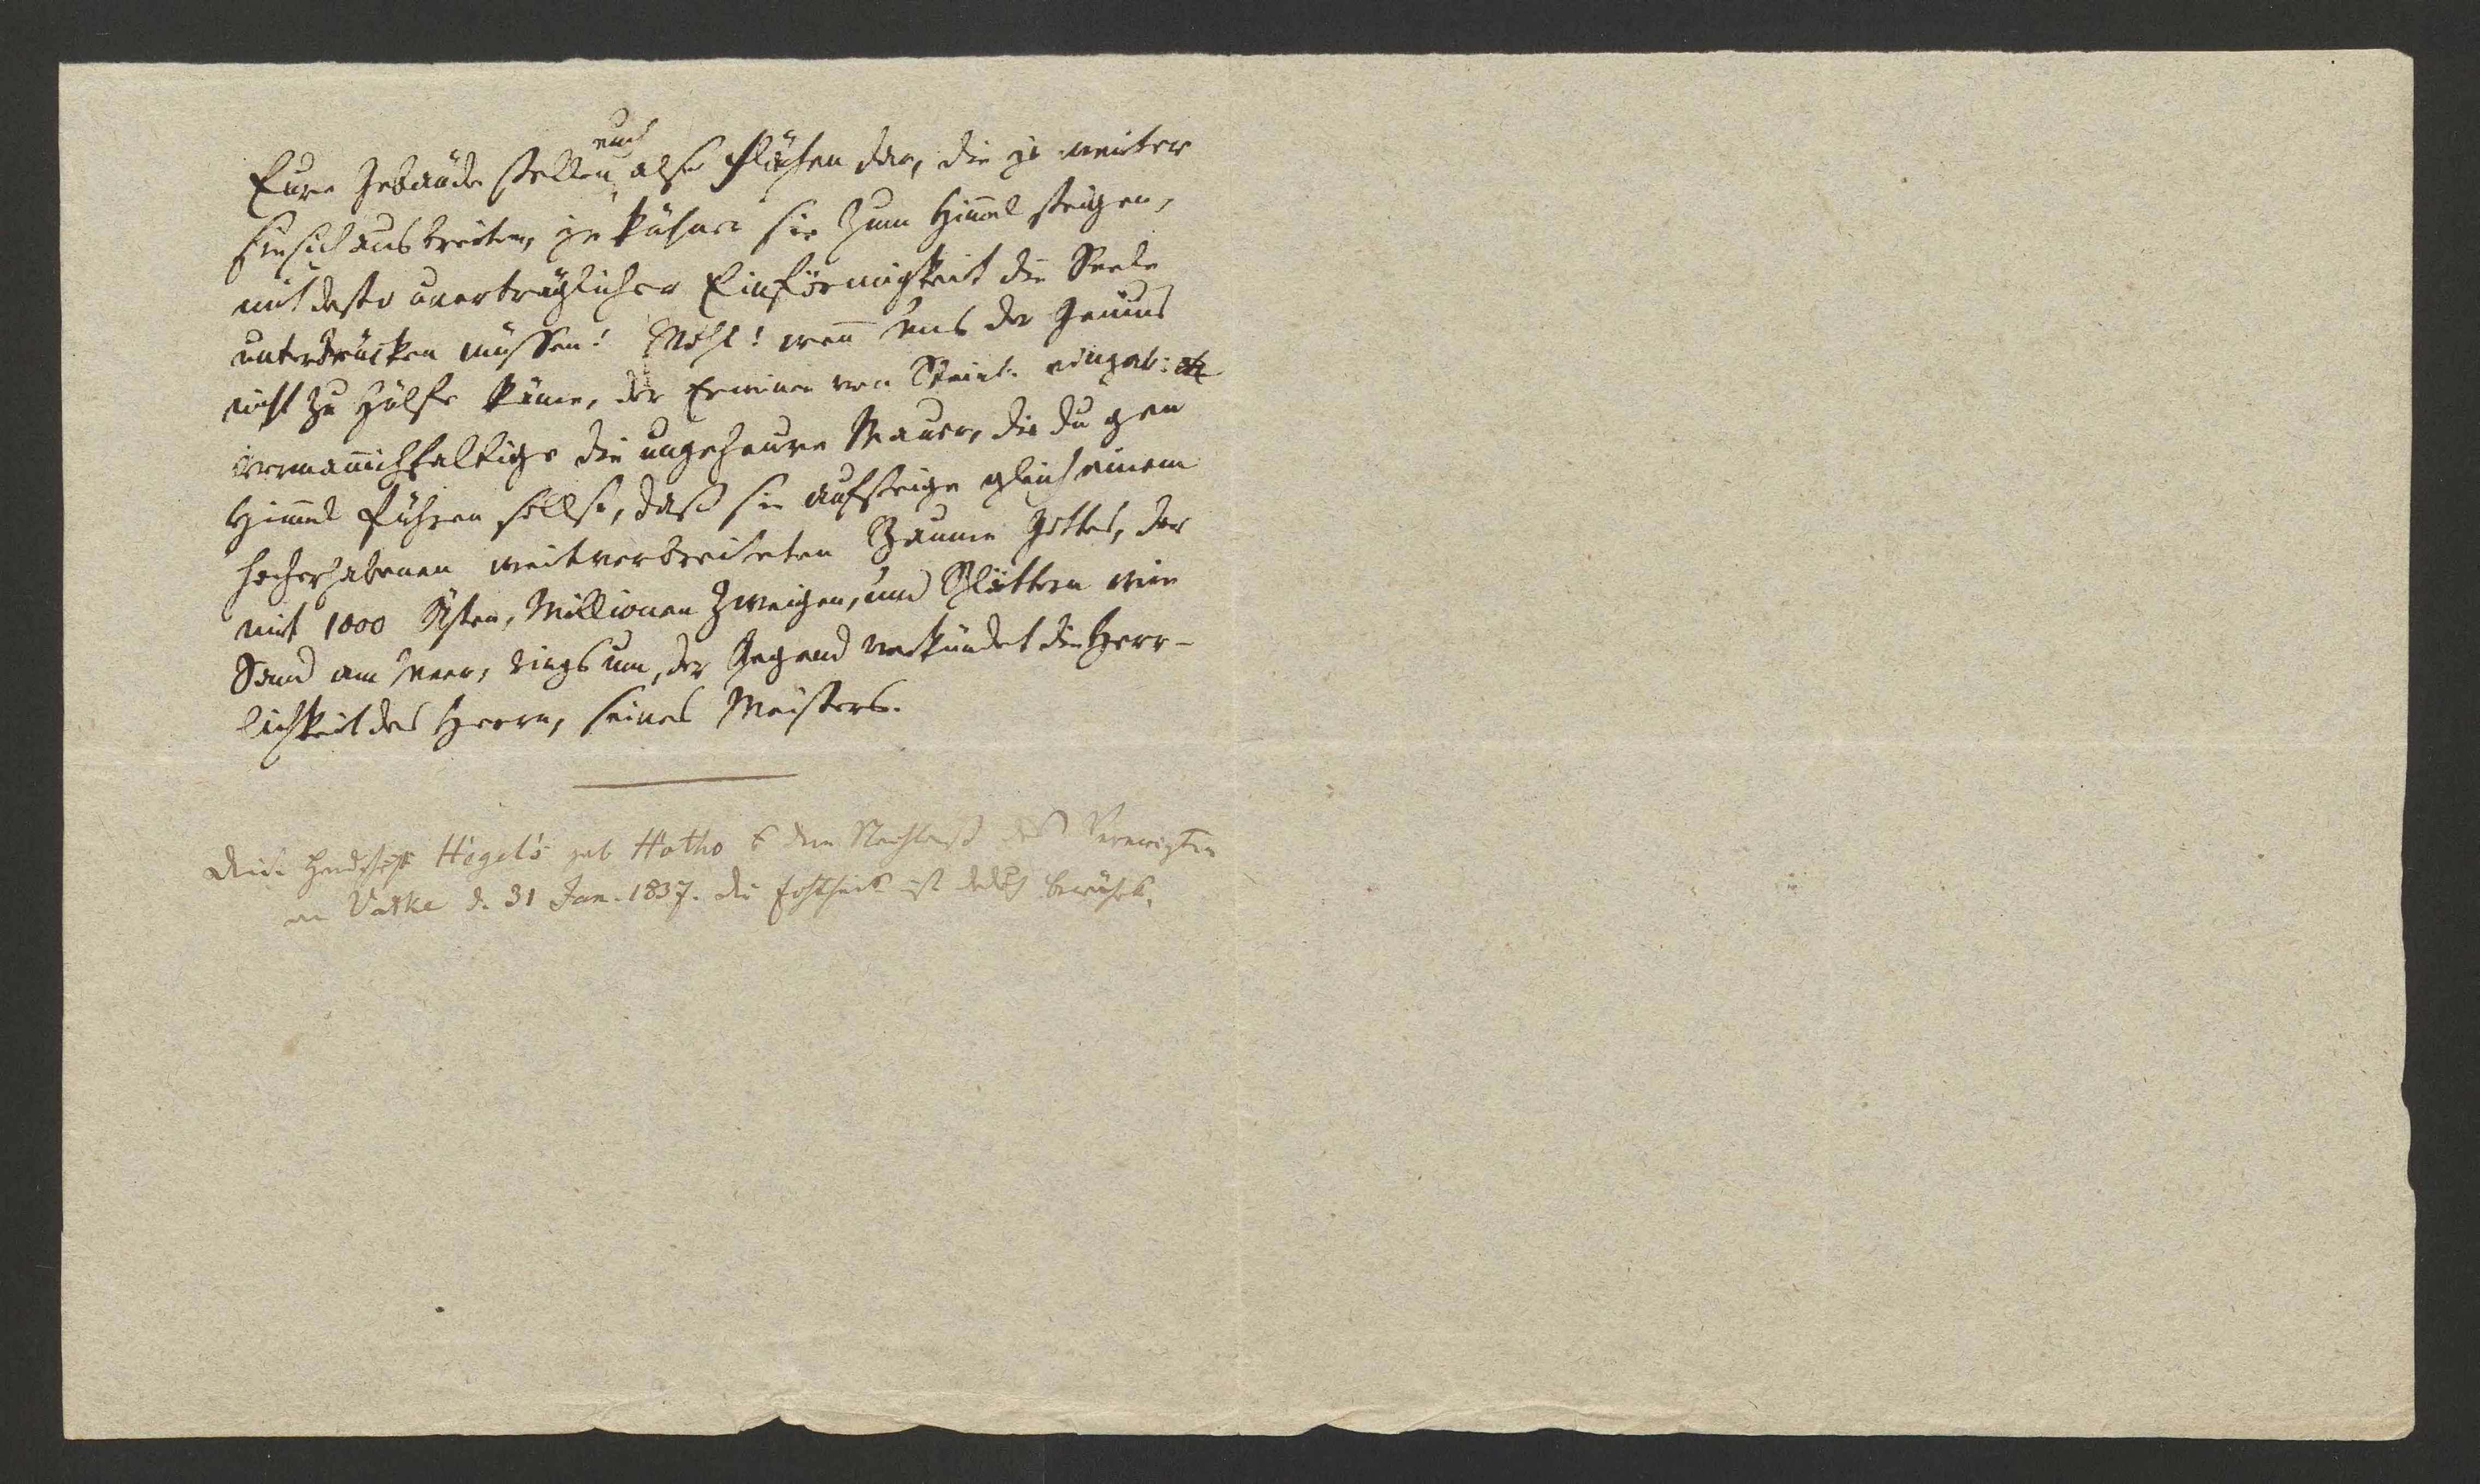 euch
Eure Gebäude stellen also Flächen dar, die je weiter
sie sich ausbreiten, je kühner sie zum Him̅el steigen,
mit desto unerträglicher Einförmigkeit die Seele
unterdrücken müssen! Wohl! wen̅ uns der Genius
nicht zu Hülfe käme, der Erwinen von Steinb. eingab:
verman̅ichfaltige die ungeheure Mauer, die du gen
Him̅el führen sollst, daß sie aufsteige gleich einem
hocherhabenen weitverbreiteten Baume Gottes, der
mit 1000 Ästen, Millionen Zweigen, und Blättern wie
Sand am Meer, rings um, der Gegend verkündet die Herr-
lichkeit des Herrn, seines Meisters.
Diese Handschrift Hegel's gab Hotho dem Nachlaß des Verewigten
an Vatke d. 31 Jan. 1837. die ist